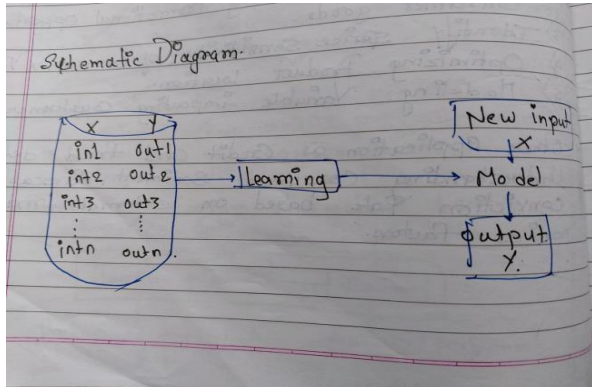 Schematic Diagram.
X Y
in1 out1
int2 out2
int3 out3
⋮ ⋮
intn outn.
Learning
New input
X
Model
Output
Y.